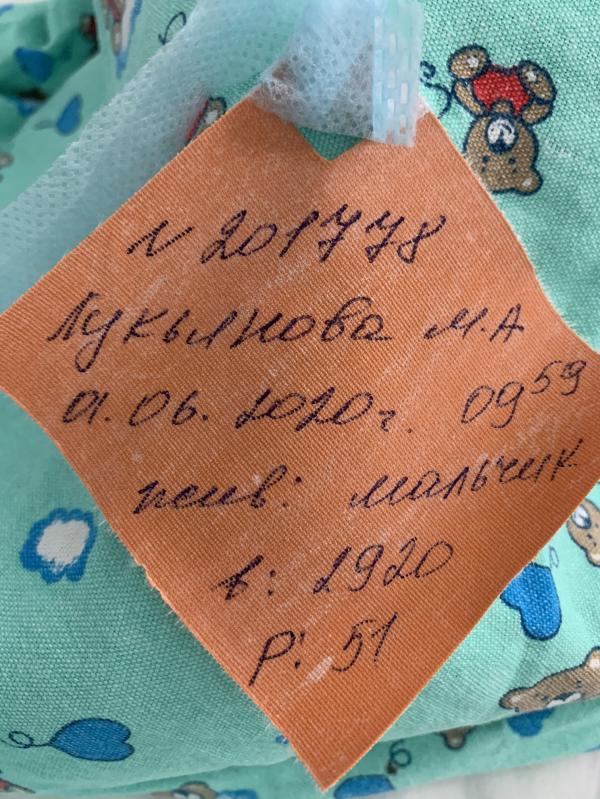 N 201778
Лукьянова М.А
01.06.2020г. 09 59
жив: мальчик
в: 2920
Р: 51